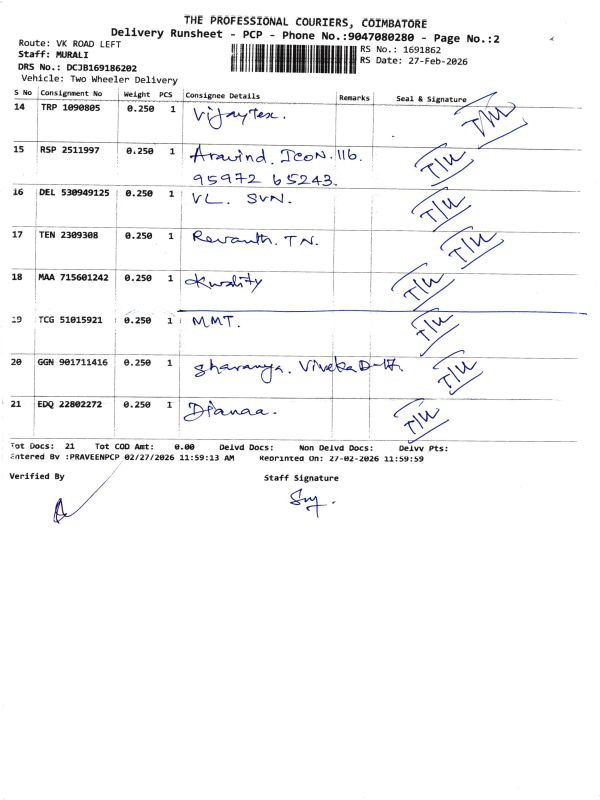 THE PROFESSIONAL COURIERS, COIMBATORE
Delivery Runsheet - PCP - Phone No.:9047080280 - Page No.:2
Route: VK ROAD LEFT
RS No.: 1691862
Staff: MURALI
RS Date: 27-Feb-2026
DRS No.: DCJB169186202
Vehicle: Two Wheeler Delivery
S No Consignment No Weight PCS Consignee Details Remarks Seal & Signature
14 TRP 1090805 0.250 1 Vijaytex.
15 RSP 2511997 0.250 1 Aravind. ICON. 116.
95972 65243.
16 DEL 530949125 0.250 1 VL. SVN.
17 TEN 2309308 0.250 1 Revanth. TN.
18 MAA 715601242 0.250 1 Kwality
19 TCG 51015921 0.250 1 MMT.
20 GGN 901711416 0.250 1 Sharanya.
21 EDQ 22802272 0.250 1 Dianaa.
Tot Docs: 21 Tot COD Amt: 0.00 Delvd Docs: Non Delvd Docs: Delvv Pts:
Entered By :PRAVEENPCP 02/27/2026 11:59:13 AM Reprinted On: 27-02-2026 11:59:59
Verified By Staff Signature